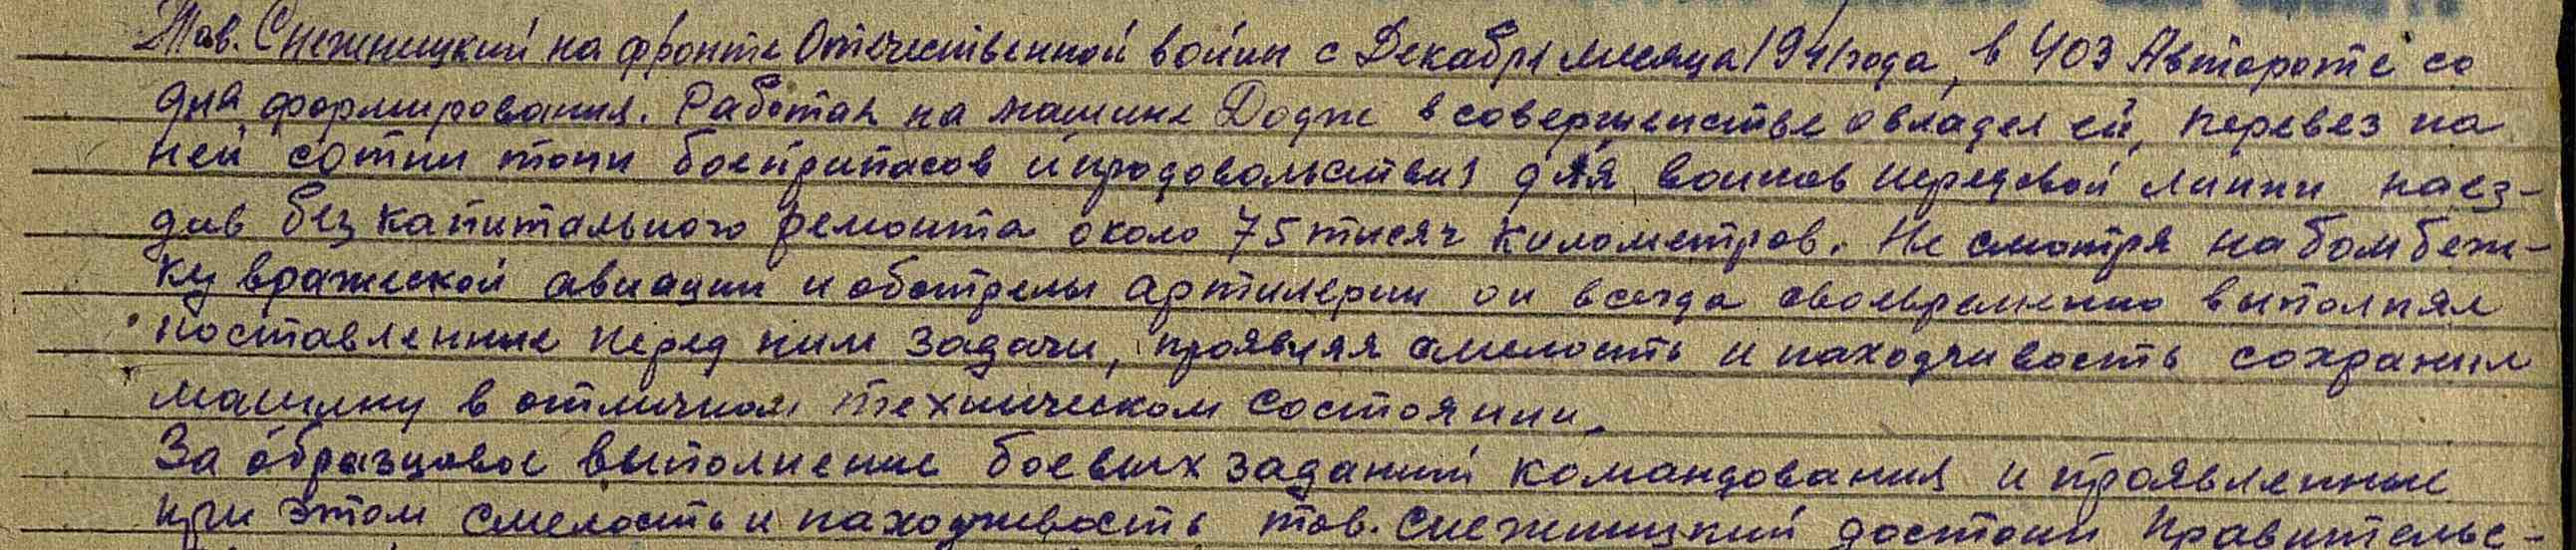 Тов. Снежницкий на фронте Отечественной войны с Декабря месяца 1941 года, в 403 Автороте со
дня формирования. Работая на машине Додж в совершенстве овладел ей, перевез на
ней сотни тонн боеприпасов и продовольствия для воинов передовой линии наез-
див без капитального ремонта около 75 тысяч километров. Не смотря на бомбеж-
ку вражеской авиации и обстрелы артилерии он всегда своевременно выполнял
поставленные перед ним задачи, проявляя смелость и находчивость сохранил
машину в отличном техническом состоянии.
За образцовое выполнение боевых заданий командования и проявленные
при этом смелость и находчивость тов. Снежницкий достоин Правительс-